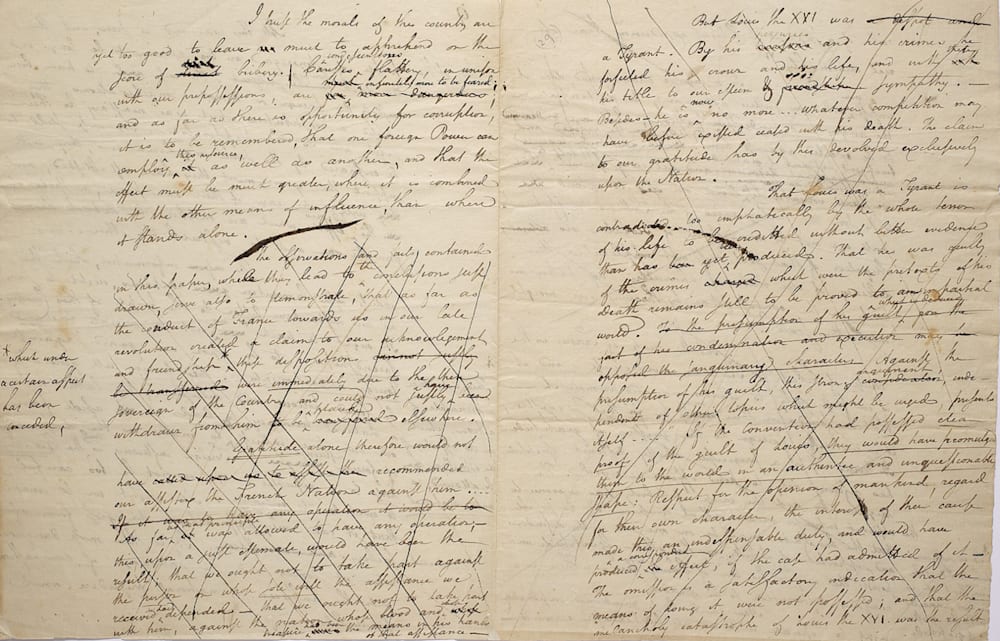 I trust the morals of this country are
yet too good to leave much to apprehend on the
score of bribery. Caresses, condescensions flattery, in unison
with our prepossessions, are infinitely more to be feared;
and as far as there is opportunity for corruption,
it is to be remembered, that one foreign Power can
employ this resource, as well as another, and that the
effect must be much greater, where it is combined
with the other means of influence, than where
it stands alone.
The observations and facts contained
in this paper, while they lead to the conclusions just
drawn, serve also to demonstrate, that as far as
the conduct of France towards us in our late
revolution created a claim to our acknowlegement
and friendship * these dispositions cannot justly
be transferred were immediately due to the then
sovereign of the Country and could not justly
withdrawn from him to be placed elsewhere.
* which under
a certain aspect
has been
conceded,
Gratitude alone therefore would not
have recommended
our assisting the French Nation against him ....
If it ought to have any operation it would be to
So far as it was allowed to have any operation,—
this upon a just estimate, would have been the
result, that we ought not to take part against
the person on whose sole will the assistance we
received had depended — that we ought not to take part
with him, against the nation whose blood and whose
treasure were the means in his hands
of that assistance —
(29)
But Louis the XVI was despot and
a Tyrant. By his perjuries and his crimes he
forfeited his crown and his life, and with
his title to our esteem & sympathy. —
Besides — he is now no more ... whatever competition may
have before existed ceased with his death. The claim
to our gratitude has by this devolved exclusively
upon the Nation.
That Louis was a Tyrant is
contradicted too emphatically by the whole tenor
of his life to be credited without better evidence
than has been yet produced. That he was guilty
of the crimes which were the pretexts of his
Death remains still to be proved to an impartial
world. To the presumption of his guilt, upon the
part of his condemnation and execution may
opposed the sanguinary character Against the
presumption of his guilt, this strong argument, inde-
pendent of other topics which might be urged, presents
itself .... "If the convention had possessed clear
proof of the guilt of Louis, they would have promulged
them to the world in an authentic and unquestionable
shape: Respect for the opinion of mankind, regard
for their own character, the interest of their cause
made this an indispensable duty, and would have
produced correspondent effect, if the case had admitted of it —
The omission is a satisfactory indication that the
means of doing it were not possessed; and that the
melancholy catastrophe of Louis the XVI. was the result